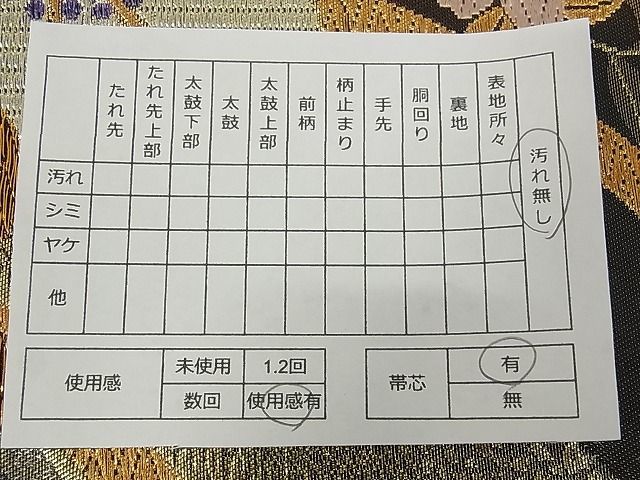 たれ先
たれ先上部
太鼓下部
太鼓
太鼓上部
前柄
柄止まり
手先
胴回り
裏地
表地所々
汚れ無し
汚れ
シミ
ヤケ
他
使用感
未使用
1.2回
数回
使用感有
帯芯
有
無